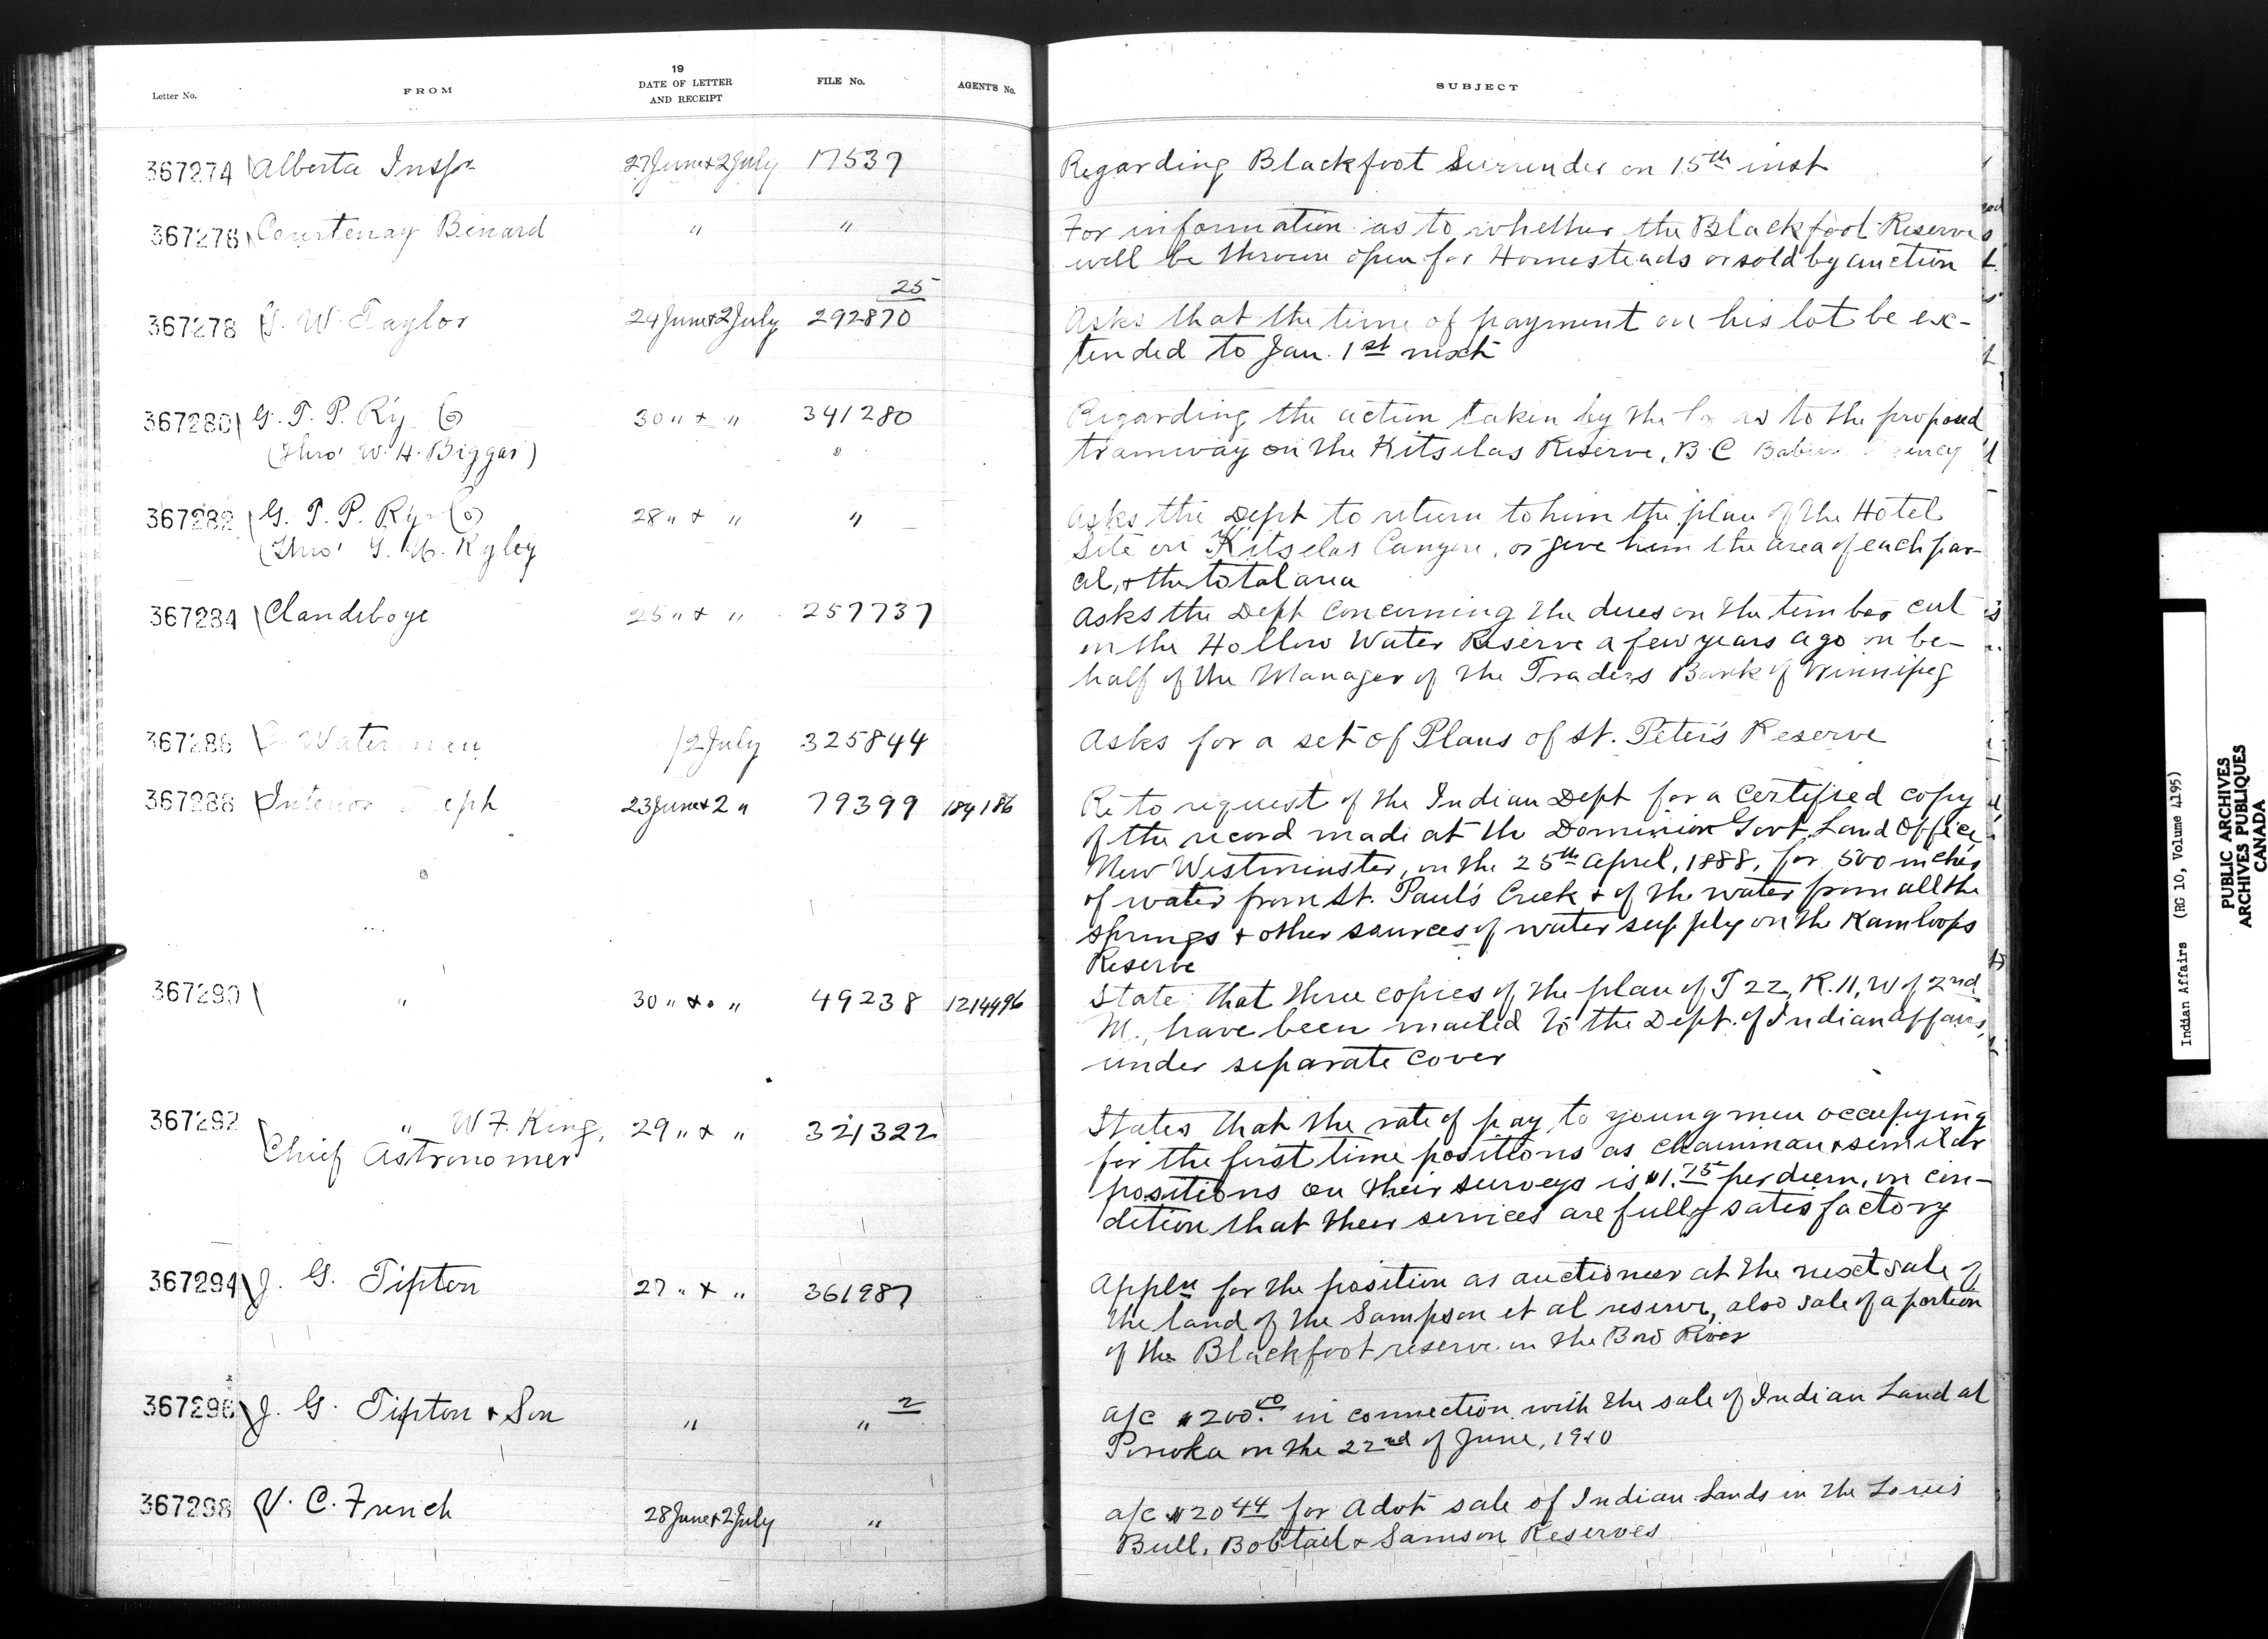 19
Letter No. FROM DATE OF LETTER AND RECEIPT FILE No. AGENT'S No. SUBJECT
367274 Alberta Inspr 27 June & 2 July 17537 Regarding Blackfoot Surrender on 15th inst
367276 Courtenay Benard " " For information as to whether the Blackfoot Reserve
will be thrown open for Homesteads or sold by auction
25
367278 W. Taylor 24 June & 2 July 292870 Asks that the time of payment on his lot be ex-
tended to Jan. 1st next
367280 G. T. P. Ry Co 30 " & " 341280 Regarding the action taken by the Co as to the proposed
(Thro' W. H. Biggar) tramway on the Kitselas Reserve, B.C
367282 G. T. P. Ry Co 28 " & " " Asks the Dept to return to him the plan of the Hotel
(Thro' Ryley Site on Kitselas Canyon, or give him the area of each par-
cel, & the total area
367284 Clandeboye 25 " & " 257737 Asks the Dept concerning the dues on the timber cut
on the Hollow Water Reserve a few years ago on be-
half of the Manager of the Traders Bank of Winnipeg
367286 Waterman /2 July 325844 Asks for a set of Plans of St. Peter's Reserve
367288 Interior 23 June & 2 " 79399 184186 Re to request of the Indian Dept for a certified copy
of the record made at the Dominion Govt. Land Office,
New Westminster, on the 25th April, 1888, for 500 inches
of water from St. Paul's Creek & of the water from all the
springs & other sources of water supply on the Kamloops
Reserve
367290 " 30 " & " 49238 1214496 State that three copies of the plan of T 22, R. 11, W of 2nd
M., have been mailed to the Dept. of Indian Affairs,
under separate cover
367292 " W F. King, 29 " & " 321322 States that the rate of pay to young men occupying
Chief Astronomer for the first time positions as chainman & similar
positions on their surveys is $1.75 per diem, on con-
dition that their services are fully satisfactory
367294 J. G. Tipton 27 " & " 361987 Appln for the position as auctioneer at the next sale of
the land of the Sampson et al reserve, also sale of a portion
of the Blackfoot reserve on the Bow River
367296 J. G. Tipton & Son " " 2 a/c $200.00 in connection with the sale of Indian Land at
Ponoka on the 22nd of June, 1910
367298 V. C. French 28 June & 2 July " a/c $20 44 for Advt sale of Indian Lands in the Louis
Bull, Bobtail & Samson Reserves
Indian Affairs (RG 10, Volume 4195)
PUBLIC ARCHIVES
ARCHIVES PUBLIQUES
CANADA